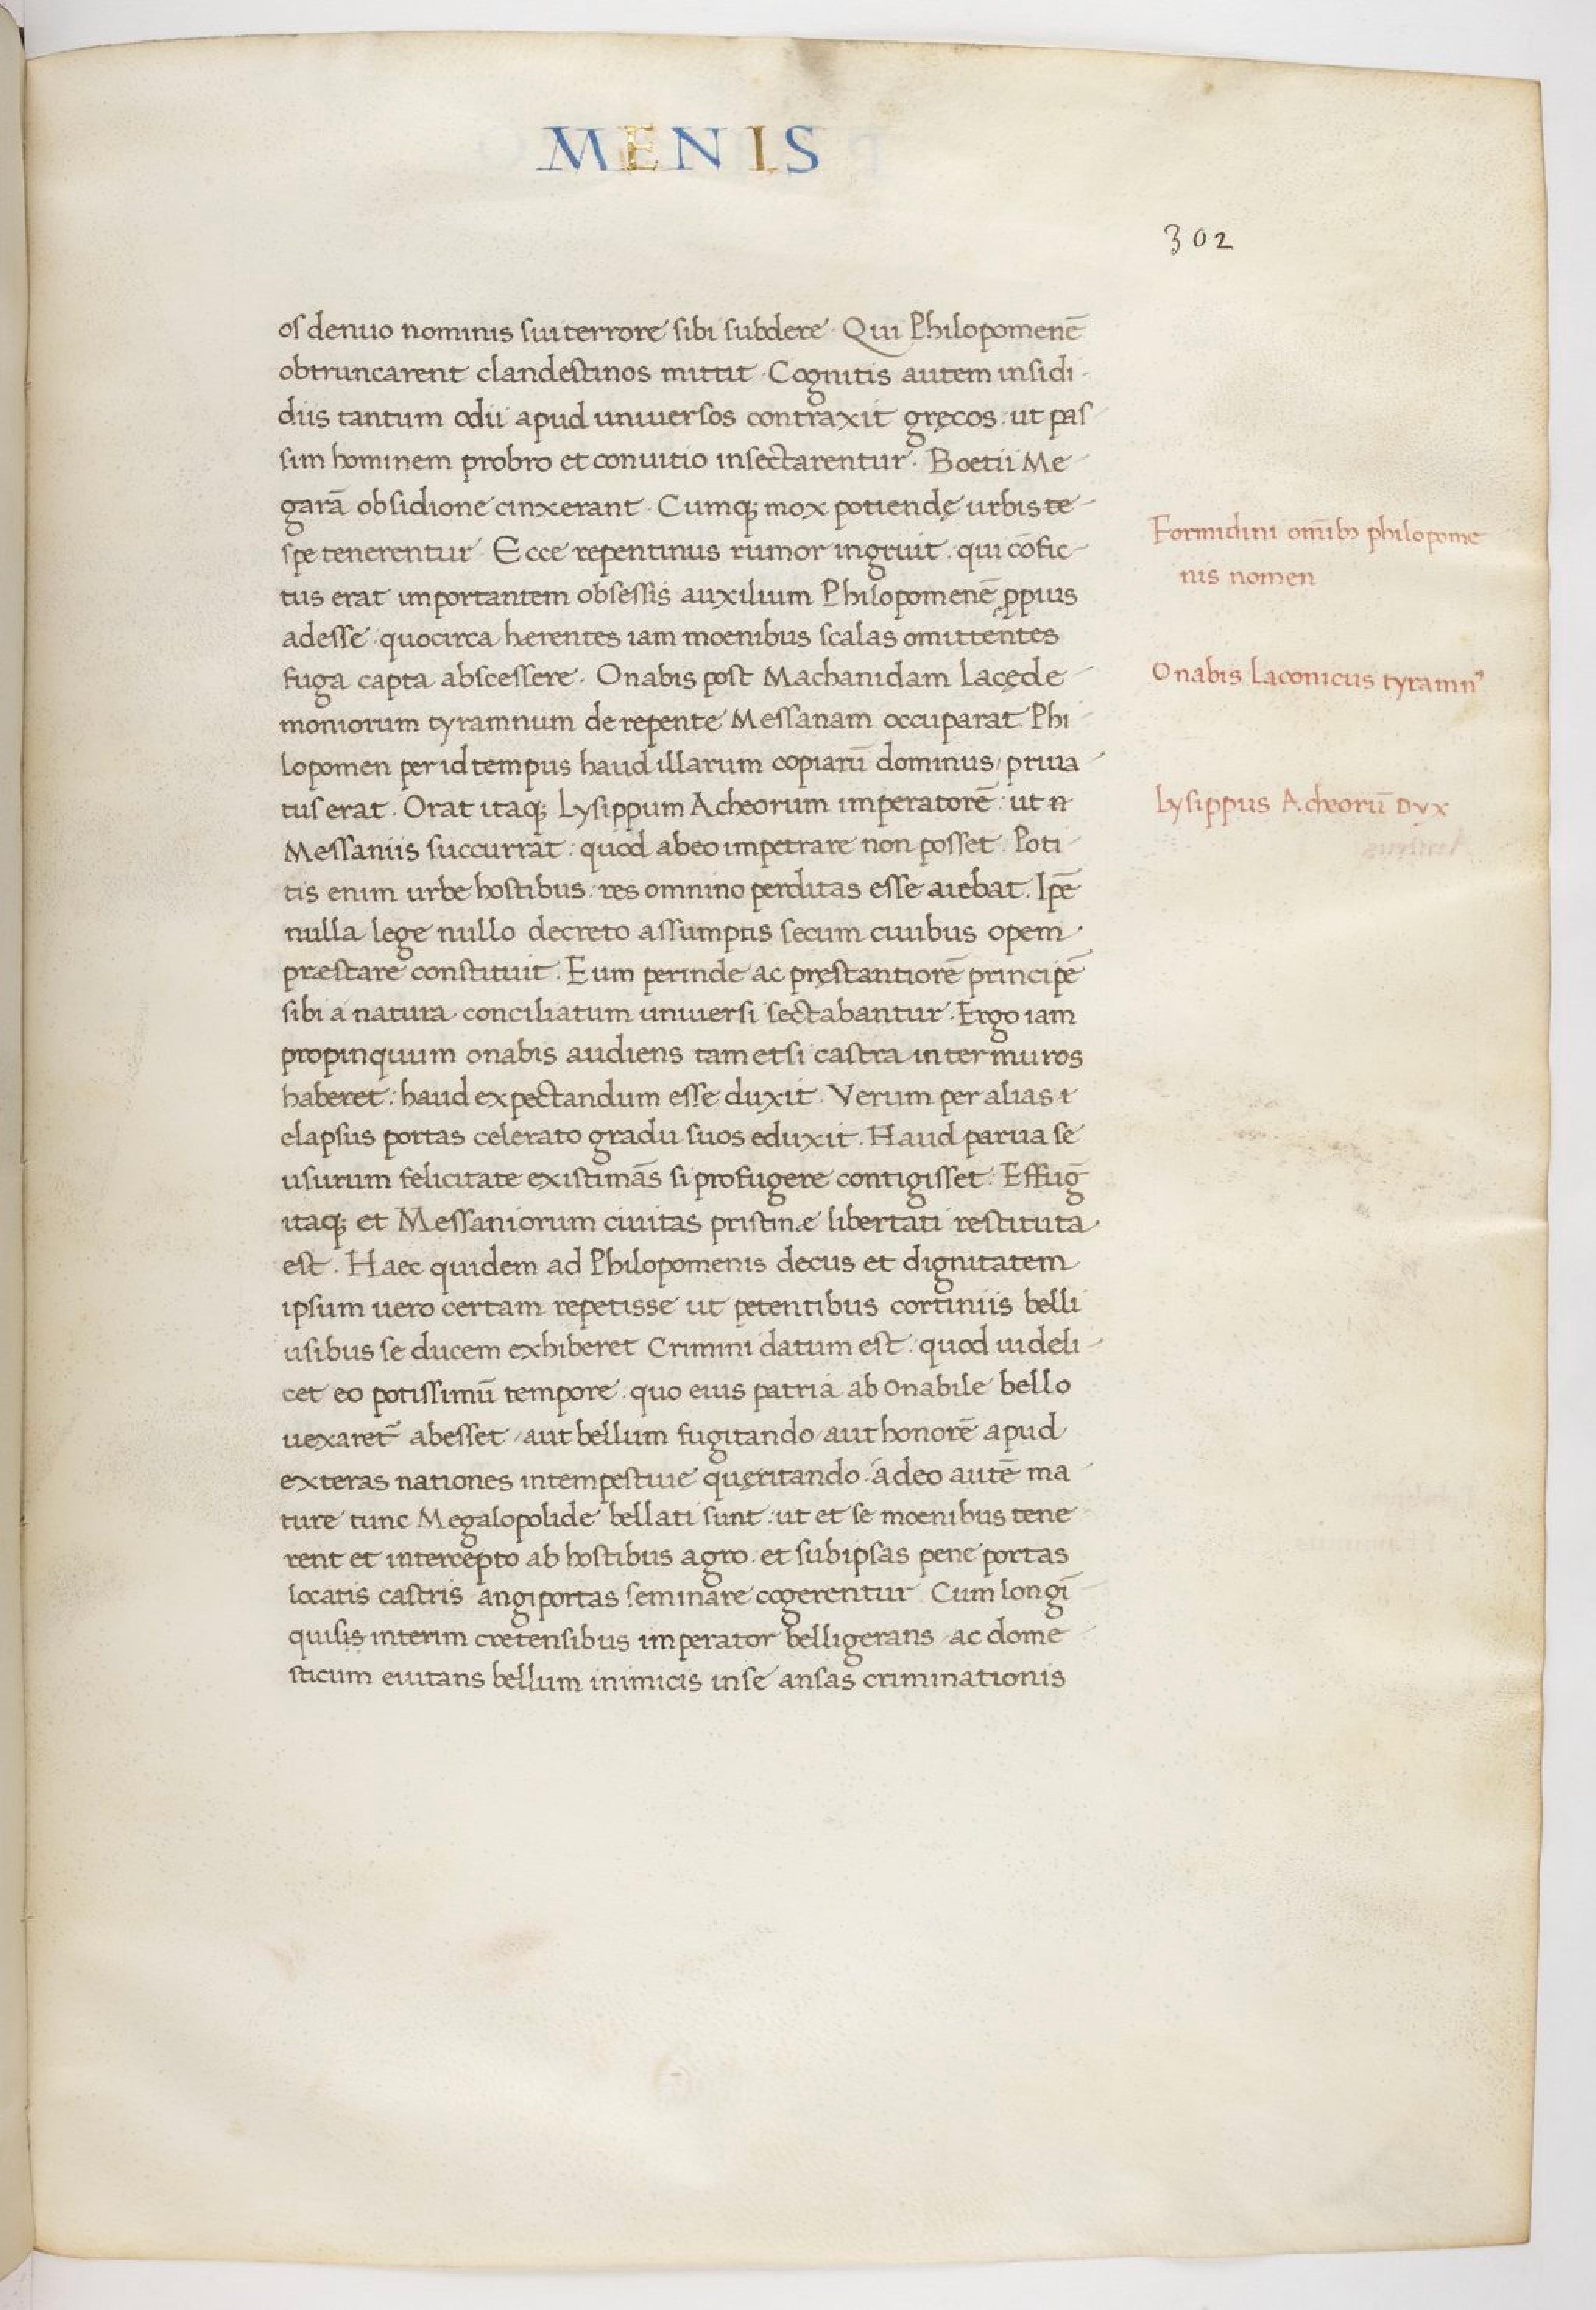 MENIS
302
os denuo nominis sui terrore sibi subdere. Qui Philopomenē
obtruncarent clandestinos mittit. Cognitis autem insidi
diis tantum odii apud uniuersos contraxit gręcos: ut pas
sim hominem probro et conuitio insectarentur. Boetii Me
garā obsidione cinxerant. Cumq; mox potiendę urbis te
spe tenerentur Ecce repentinus rumor ingruit. qui cōfic
tus erat importantem obsessis auxilium Philopomenē ꝓpius
adesse. quocirca hęrentes iam moenibus scalas omittentes
fuga capta abscessere. Onabis post Machanidam Lacęde
moniorum tyramnum de repente Messanam occuparat. Phi
lopomen per id tempus haud illarum copiarū dominus, priua
tus erat. Orat itaq; Lysippum Acheorum imperatorē: ut n
Messaniis succurrat: quod ab eo impetrare non posset. Poti
tis enim urbe hostibus: res omnino perditas esse aiebat. Ipē
nulla lege nullo decreto assumptis secum ciuibus opem
præstare constituit. Eum perinde ac pręstantiorē principē
sibi a natura conciliatum uniuersi sectabantur. Ergo iam
propinquum onabis audiens tametsi castra inter muros
haberet: haud expectandum esse duxit. Verum per alias i
elapsus portas celerato gradu suos eduxit. Haud parua se
usurum felicitate existimās si profugere contigisset. Effuḡ
itaq; et Messaniorum ciuitas pristinæ libertati restituta
est. Haec quidem ad Philopomenis decus et dignitatem
ipsum uero certam repetisse ut petentibus cortiniis belli
usibus se ducem exhiberet Crimini datum est. quod uideli
cet eo potissimū tempore. quo eius patria ab onabile bello
uexaret᷑ abesset, aut bellum fugitando, aut honorē apud
exteras nationes intempestiue quęritando. adeo autē ma
ture tunc Megalopolide bellati sunt: ut et se moenibus tene
rent et intercepto ab hostibus agro. et sub ipsas pene portas
locatis castris angiportas seminare cogerentur Cum longī
quisis interim cretensibus imperator belligerans ac dome
sticum euitans bellum inimicis in se ansas criminationis
Formidini om̄ibꝫ philopome
nis nomen
Onabis Laconicus tyramnꝰ
Lysippus Acheorū DVX